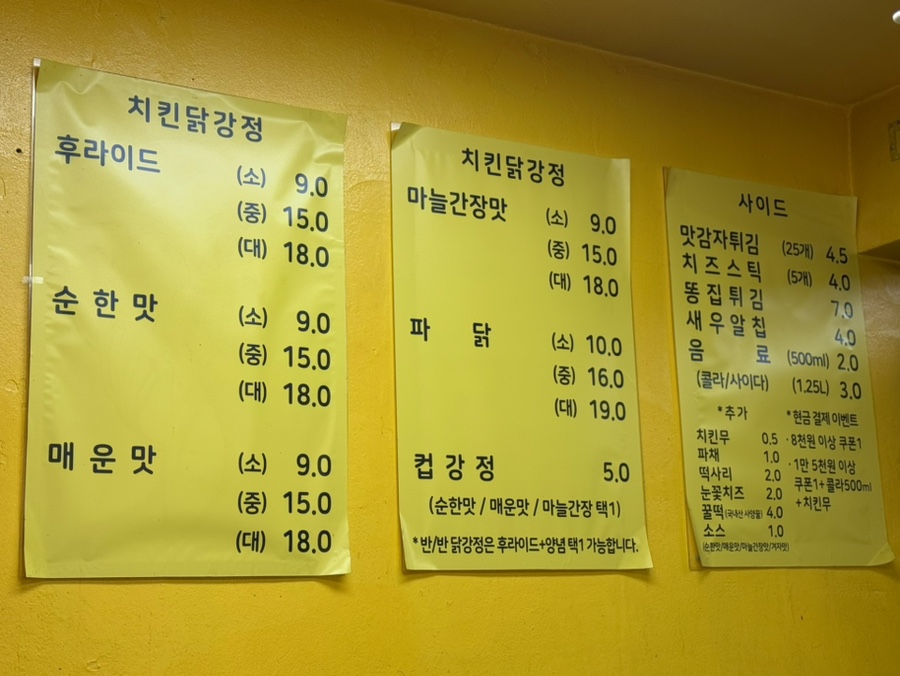 치킨닭강정
후라이드 (소) 9.0
(중) 15.0
(대) 18.0
순한맛 (소) 9.0
(중) 15.0
(대) 18.0
매운맛 (소) 9.0
(중) 15.0
(대) 18.0
치킨닭강정
마늘간장맛 (소) 9.0
(중) 15.0
(대) 18.0
파 닭 (소) 10.0
(중) 16.0
(대) 19.0
컵강정 5.0
(순한맛 / 매운맛 / 마늘간장 택1)
*반/반 닭강정은 후라이드+양념 택1 가능합니다.
사이드
맛감자튀김 (25개) 4.5
치즈스틱 (5개) 4.0
똥집튀김 7.0
새우알칩 4.0
음 료 (500ml) 2.0
(콜라/사이다) (1.25L) 3.0
*추가
치킨무 0.5
파채 1.0
떡사리 2.0
눈꽃치즈 2.0
꿀떡(국내산 사양꿀) 4.0
소스 1.0
(순한맛/매운맛/마늘간장맛/겨자맛)
*현금 결제 이벤트
· 8천원 이상 쿠폰1
· 1만 5천원 이상
쿠폰1+콜라500ml
+치킨무